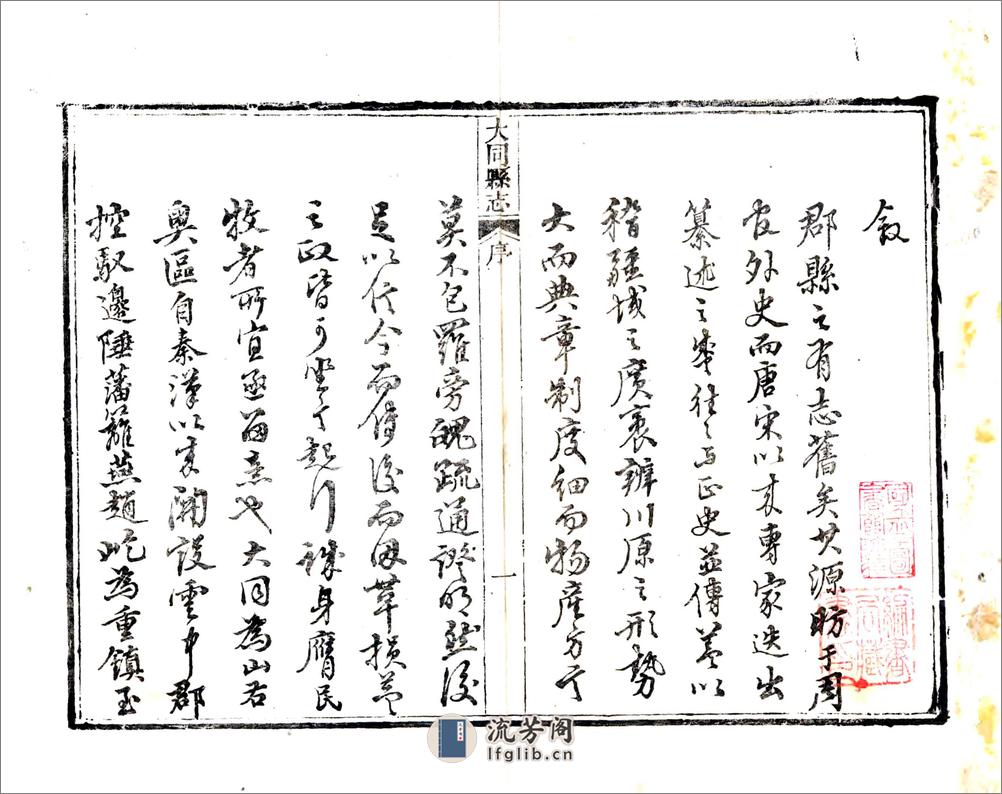 敘
郡縣之有志舊矣其源昉于周
官外史而唐宋以來專家迭出
纂述之家往々與正史並傳蓋以
稽疆域之廣袤辨川原之形勢
大而典章制度細而物產方言
大同縣志
序
一
莫不包羅旁魄疏通證明然後
足以信今而傳後而因革損益
之政皆可坐言起行 身膺民
牧者所宜亟留意也大同為山右
奧區自秦漢以來開設雲中郡
控馭邊陲藩籬燕趙屹為重鎮至
流芳阁
lfglib.cn